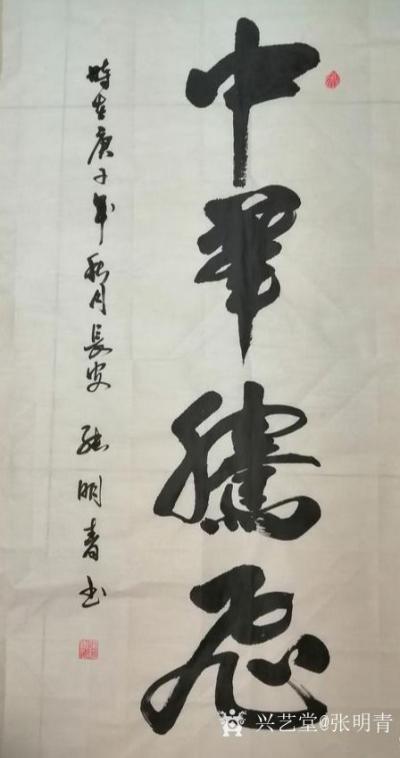 中華騰飛
時在庚子年秋月長安張明青书
兴艺堂@张明青